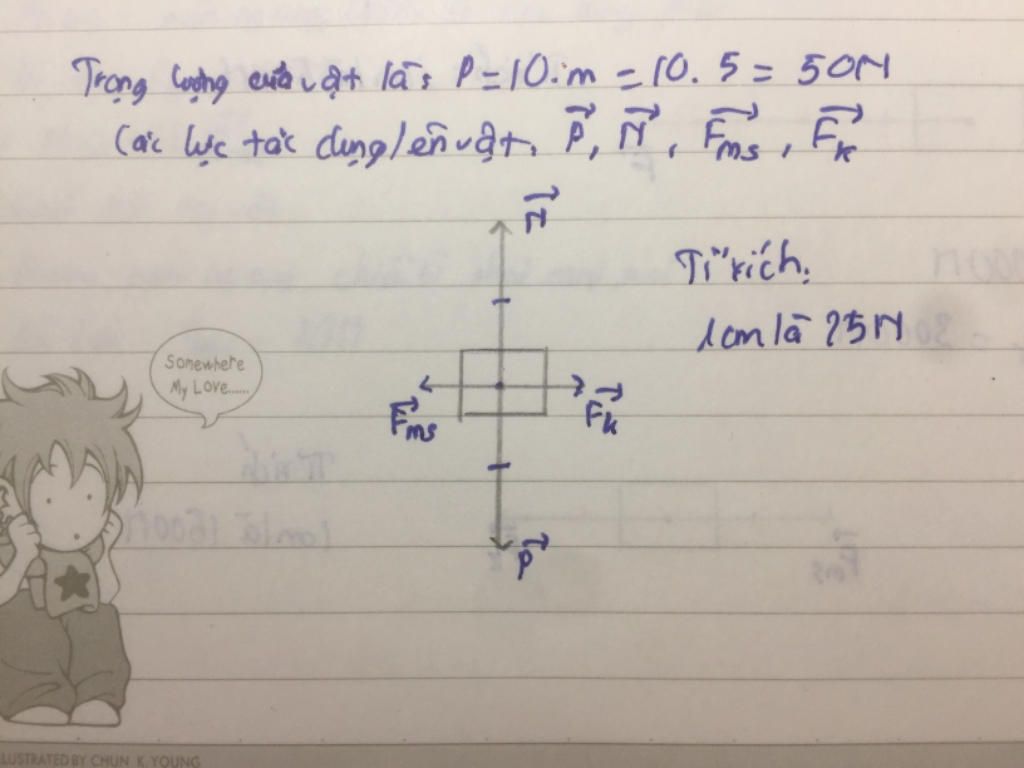 Trọng lượng của vật là: P = 10.m = 10. 5 = 50N
Các lực tác dụng lên vật: P⃗, N⃗, F⃗ms, F⃗k
N⃗
Tỉ xích:
1cm là 25N
Somewhere
My Love......
F⃗ms
F⃗k
P⃗
LLUSTRATED BY CHUN K. YOUNG